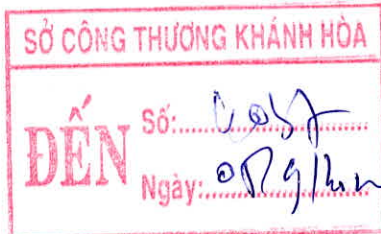 SỞ CÔNG THƯƠNG KHÁNH HÒA
ĐẾN
Số:
Ngày: